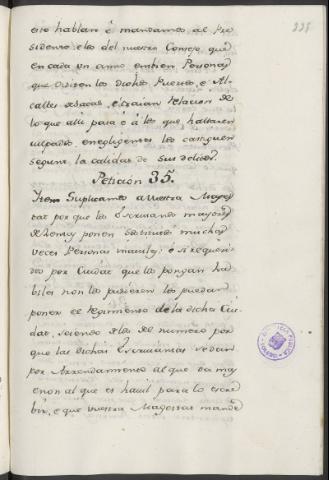 esto hablan é mandamos al Pre
sidente, e los del nuestro Consejo, que
en cada un anno embien Personas
que visiten los dichos Puertos, e Al
calles de sacas, e traian relacion de
lo que allí pasa é á los que hallaren
culpados, e negligentes los castiguen
segun la calidad de sus delitos.
Peticion 35.
Item Suplicamos a vuestra Mages
tat por que los Escrivanos mayores
de Rentas ponen
veces Personas é si requeri
dos por Cuidat que los pongan ha
biles non los pusieren los puedan
poner el regimiento de la dicha Ciu
dat, seiendo e los del numero por
que las dichas Escrivanias se dan
por Arrendamiento al que da mas
e non al que es havil para lo escre
bir, e que vuestra Magestad mande